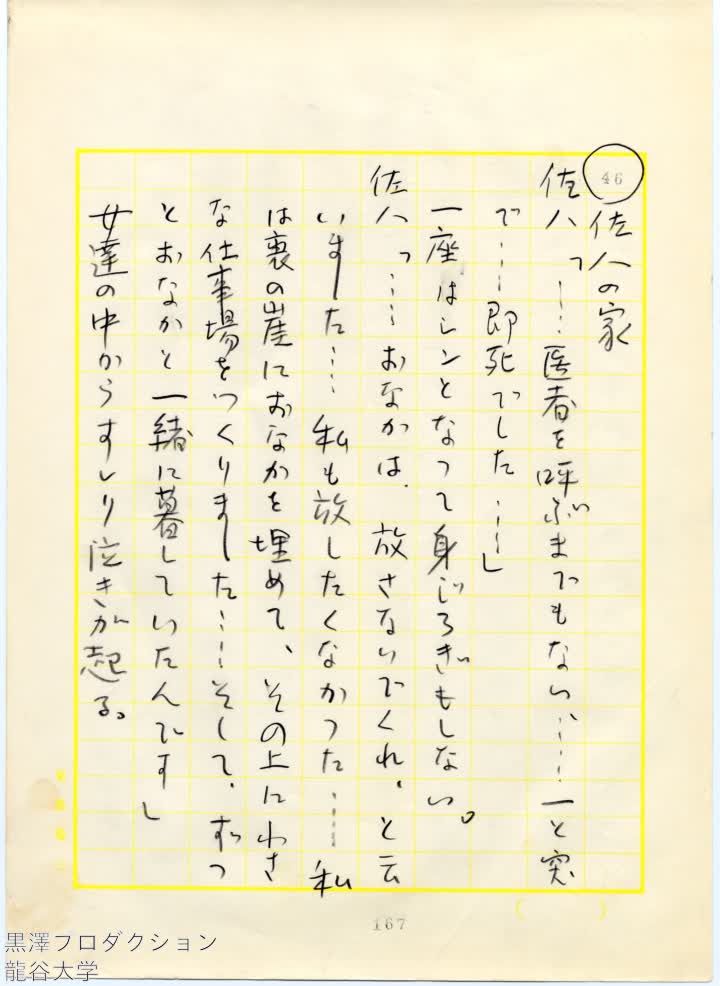 46
佐八の家
佐八「……医者を呼ぶまでもない、……一と突
で……即死でした……」
一座はシンとなって身じろぎもしない。
佐八「……おなかは、放さないでくれ、と云
いました……私も放したくなかった……私
は裏の崖におなかを埋めて、その上にわさ
な仕事場をつくりました……そして、ずっ
とおなかと一緒に暮していたんです」
女達の中からすゝり泣きが起る。
167
黒澤プロダクション
龍谷大学